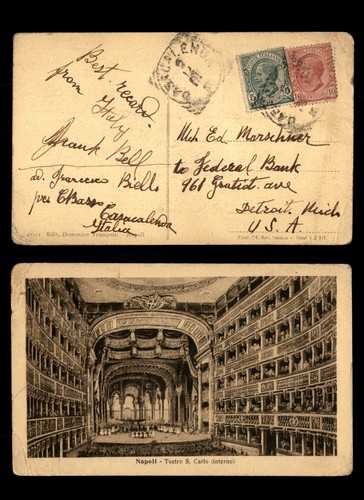 Best. record.
from Italy
Frank Bell
ad. Francesco Biello
per CBasso
Casacalenda
Italia
CASACALENDA
Mch Ed. Marschner
to Federal Bank
961 Gratiot ave
Detroit, Mich
U. S. A.
Edit. Domenico Trampetti - Napoli
Napoli - Teatro S. Carlo (interno)